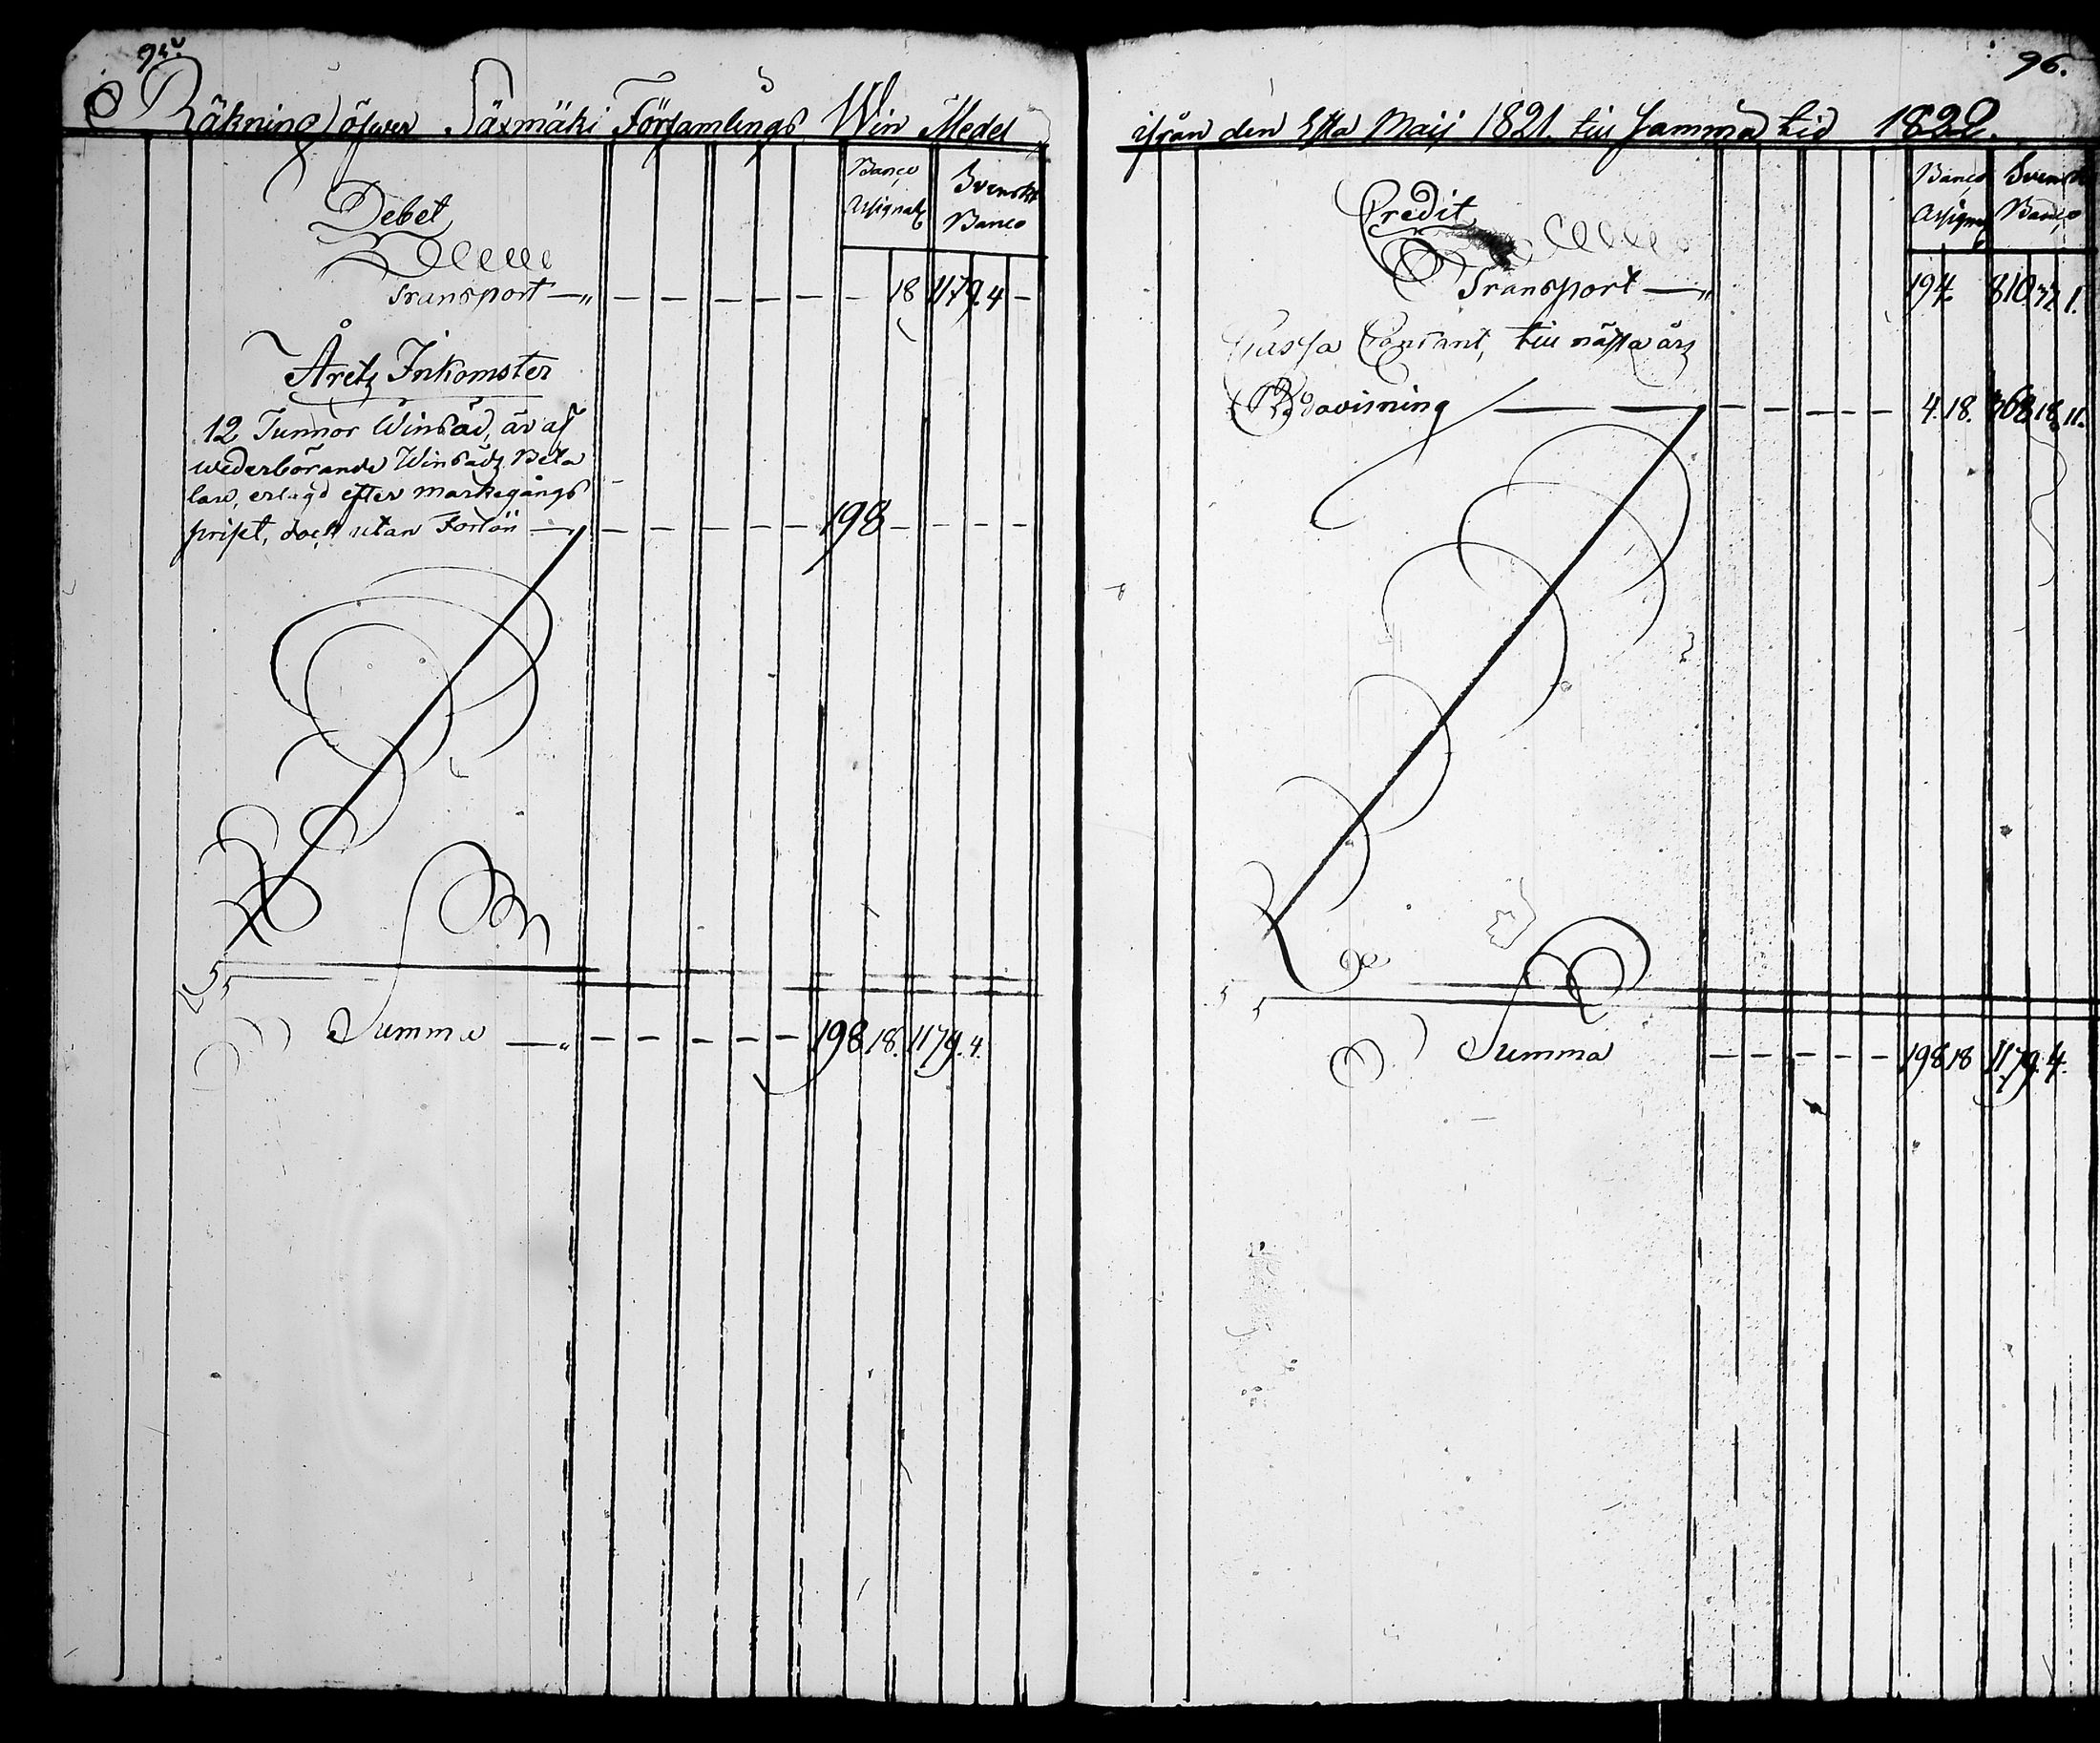 95.
Räkning öfwer Säxmäki Församlings Win Medel
Banco Assignat
Svenskt Banco
Debet
Transport — 18 1179. 4 —
Åretz Inkomster
12 Tunnor Winsäd, är af
wederbörande Winsädz Beta
lare, erlagd efter markegångs
priset, dock utan Forlön — 198 —
Summa — 198. 18. 1179. 4.
96.
ifrån den 1sta Maij 1821. till samma tid 1822.
Banco Assignat
Svenskt Banco
Credit
Transport — 194 810. 33. 1.
Cassa Courant, till nästa års
Redovisning — 4. 18. 368. 18. 11.
Summa — 198 18 1179. 4.